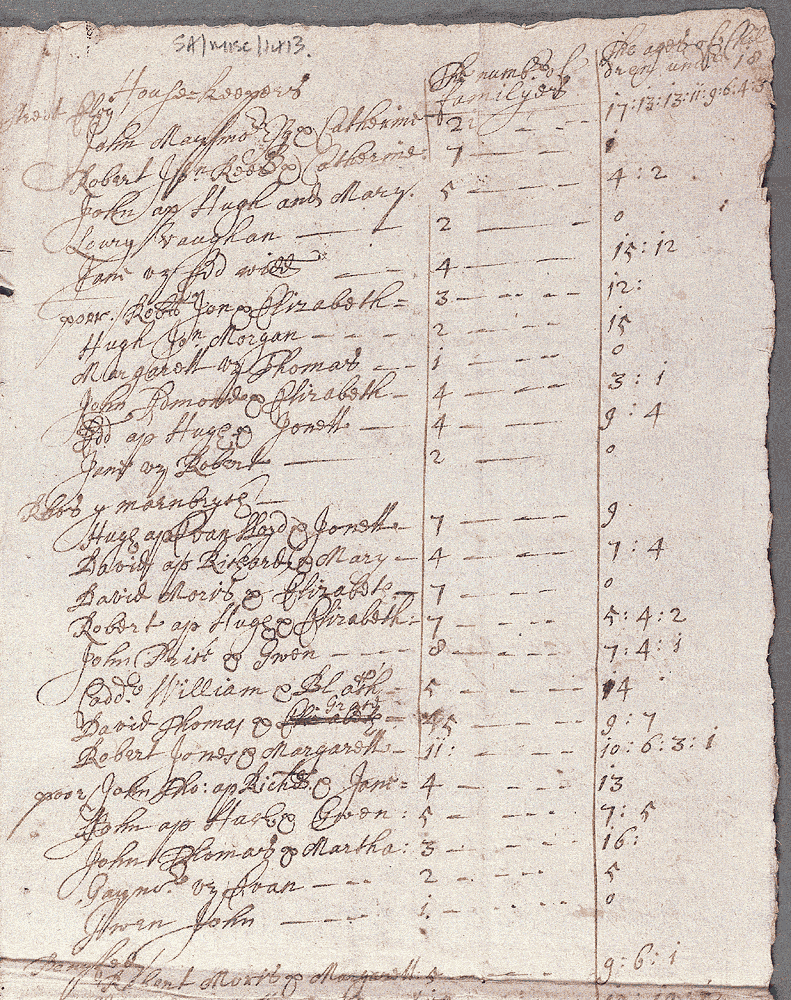 SA/MISC/1413.
House-keepers The number of familyes The ages of Children under 18
John
Esq & Catherine 21 17:13:13:11:9:6:4:3
Robert Jon Rees & Catherine 7 1
John ap Hugh and Mary. 5 4:2
Lowry Vaughan 2 0
Jane vz Edd widd 4 15:12
poor / Robt Jon & Elizabeth 3 12:
Hugh Jon Morgan 2 15
Margarett vz Thomas 1 0
John Edmond & Elizabeth 4 3:1
Edd ap Hugh & Jonett 4 9:4
Jane vz Robert 2 0
Hugh ap Evan Lloyd & Jonett 7 9
David ap Richard & Mary 4 7:4
David Moris & Elizabeth 7 0
Robert ap Hugh & Elizabeth: 7 5:4:2
John Price & Gwen 8 7:4:1
Cadd William & 5 14
David Thomas & Grace 5 9:7
Robert Jones & Margarett 11: 10:6:3:1
poor / John Tho: ap Rich & Jane 4 13
John ap Harry & Gwen: 5 7:5
John Thomas & Martha: 3 16:
Gaynor vz Evan 2 5
Gwen John 1 0
Moris & Margarett 5 9:6:1